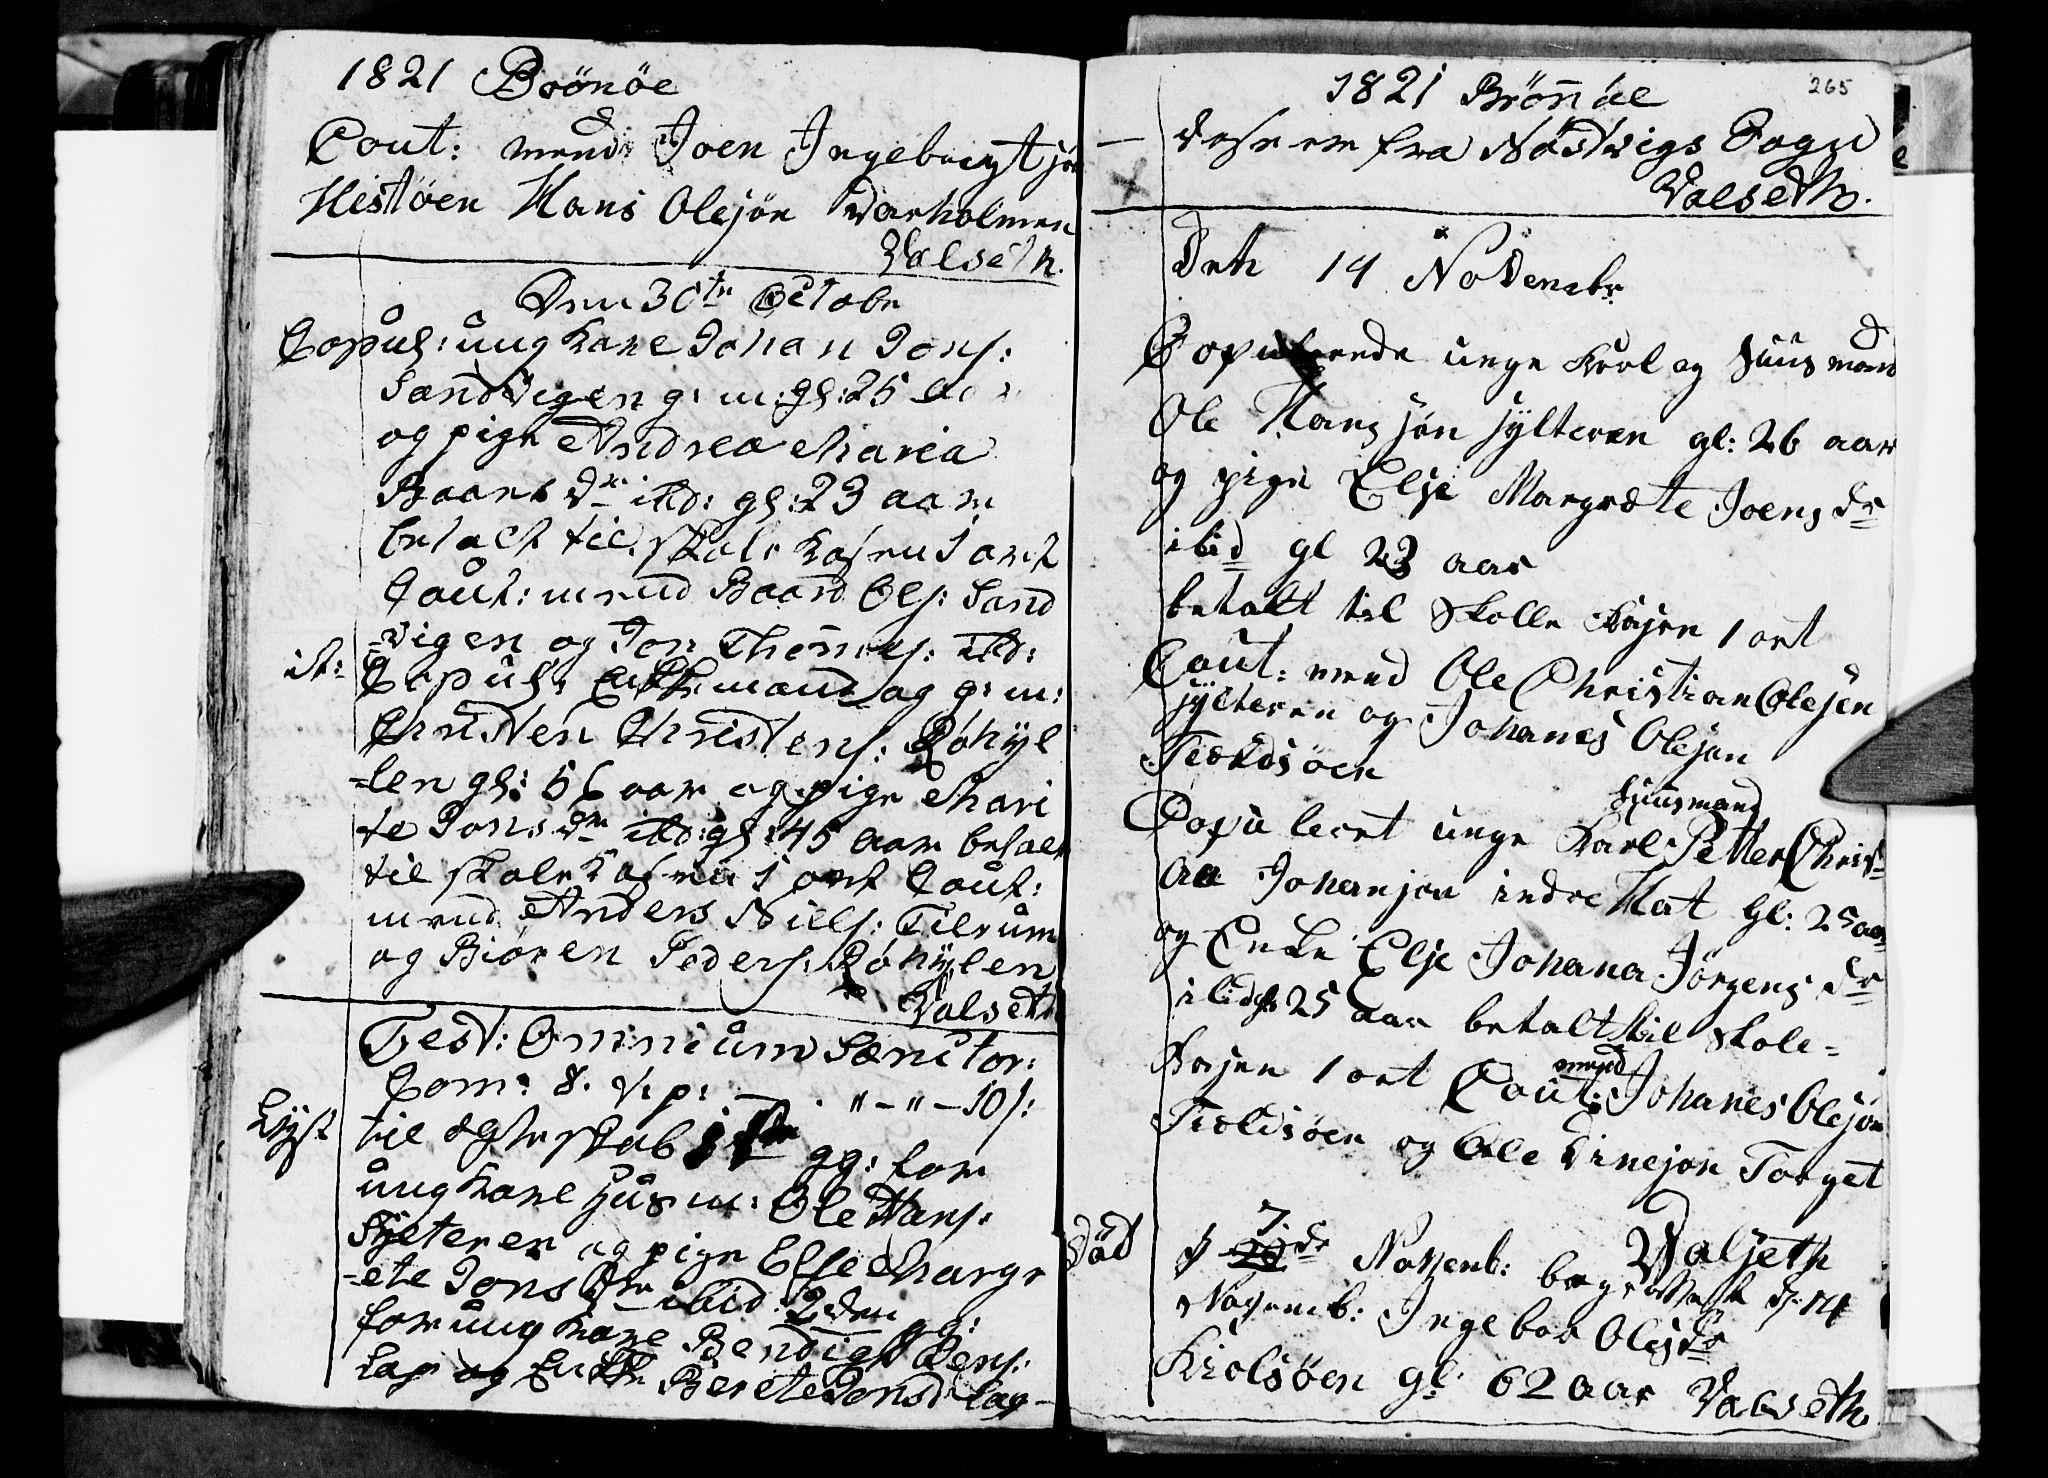 1821 Brönöe
Cout: mend Joen Ingebregtjøn
Hestöen Hans Olejön Varholmen
Valseth.
Den 30te Octobr
Copul: ung Karl Johan Jons:
Sandvigen g: m: gl: 25 Aar
og pige Andrea Maria
Baars dr ibd: gl: 23 aar
betalt til skole Kassen 1 ort
Cout: mend Baard Ols: Sand
=vigen og Jon Thomes: ibd:
it: Copul: Enkemand og g: m:
Christen Christens: Röhyl
=len gl: 56 aar og pige Mari
te Jons dr ibd: gl: 45 aar betalt
til skole Kassen 1 ort Cout:
mend Anders Niels: Tilrum
og Biören Peders: Röhylen
Valseth
Fest: Omnium Sanctor:
Com: 8. V: p: " - " - 10 s:
Lyst til ægteskab 1ste gg: for
ung Karl Huusm: Ole Hans:
Sylteren og pige Else Margr
=ete Jons Dtr ibid: 2den gg:
for ung Karl Bendigt Bens:
Lax og Enke Berete Jonsd Lax-
1821 Brönöe
265
desse ere fra Nöstvigs Sogn
Valseth.
Deth 14 November
Copulerede unge Karl og Huusmand
Ole Hansjön sylteren gl: 26 aar
og pige Elje Margrete Joens dr
ibid gl 23 aar
betalt til Skolle Kasjen 1 ort
Cout: mend Ole Christian Olejen
sylteren og Johanes Olejøn
Tioldsöen
Huusmand
Copuleert unge Karl Petter Chris
an Johanjen indre Hat gl: 25 aar
og Enke Elje Johana Jörgens dr
ibid gl 25 aar betalt til Skole=
Kasjen 1 ort Cout: mend Johanes Olejön
Tioldsöen og Ole Dinejøn Torget
Valjeth
Död d 7de Novemb: begravet d: 14
Novemb: Ingebor Olesdr
Kiolsöen gl: 62 aar Valseth